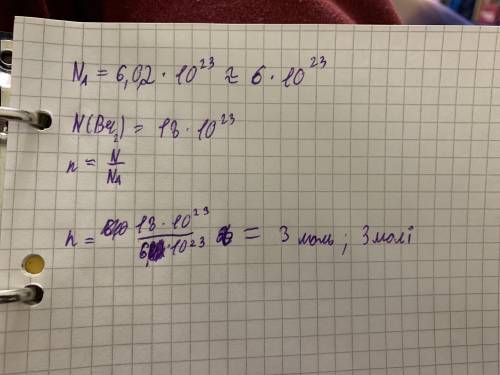 N_A = 6,02 · 10²³ ≈ 6 · 10²³
N(Br₂) = 18 · 10²³
n = N/N_A
n = 18 · 10²³ / 6 · 10²³ = 3 моль ; 3 молі